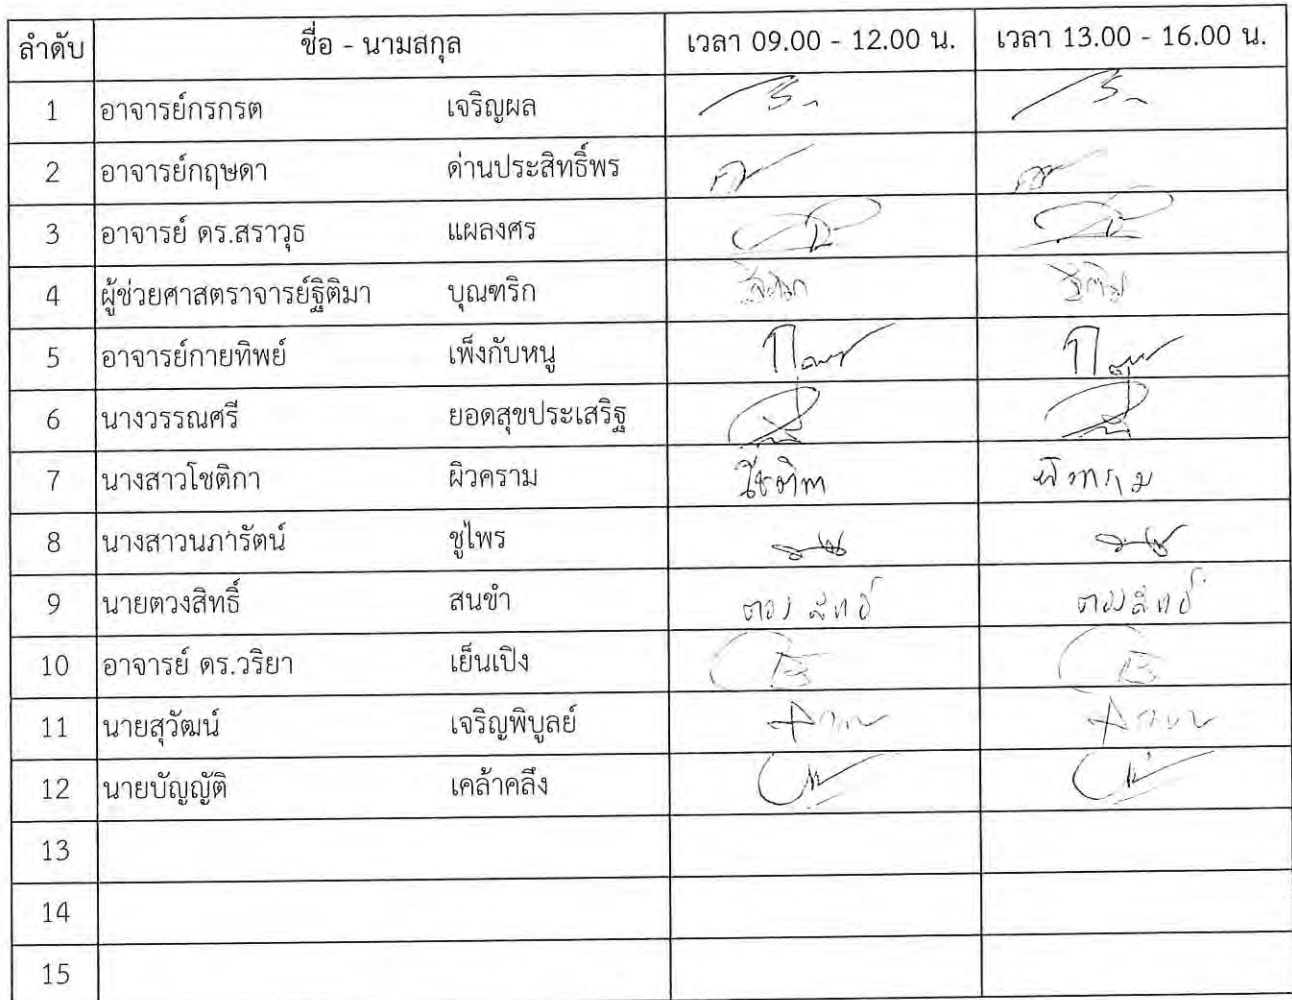 ลำดับ ชื่อ - นามสกุล เวลา 09.00 - 12.00 น. เวลา 13.00 - 16.00 น.
1 อาจารย์กรกรต เจริญผล
2 อาจารย์กฤษดา ด่านประสิทธิ์พร
3 อาจารย์ ดร.สราวุธ แผลงศร
4 ผู้ช่วยศาสตราจารย์ฐิติมา บุณฑริก
5 อาจารย์กายทิพย์ เพ็งกับหนู
6 นางวรรณศรี ยอดสุขประเสริฐ
7 นางสาวโชติกา ผิวคราม โชติกา ผิวคราม
8 นางสาวนภารัตน์ ชูไพร
9 นายตวงสิทธิ์ สนขำ ตวงสิทธิ์ ตวงสิทธิ์
10 อาจารย์ ดร.วริยา เย็นเปิง
11 นายสุวัฒน์ เจริญพิบูลย์
12 นายบัญญัติ เคล้าคลึง
13
14
15